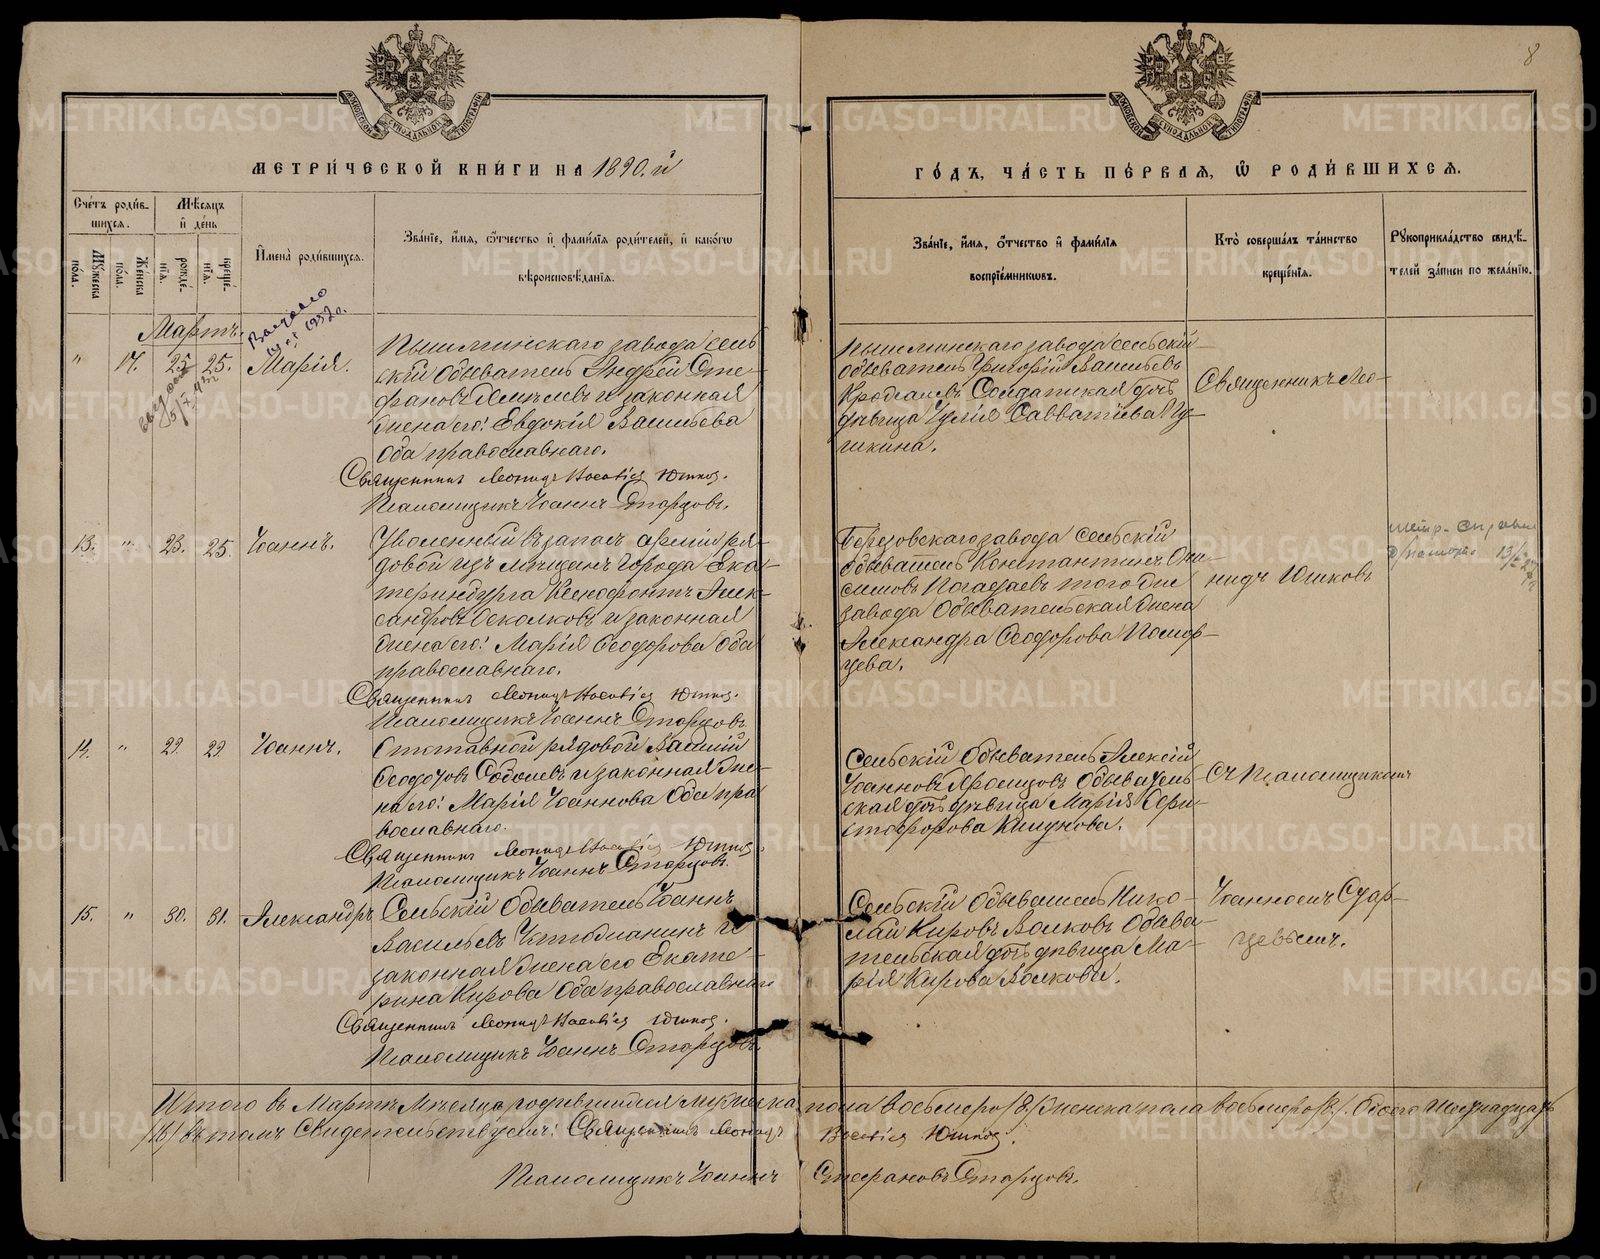 8
МЕТРИ́ЧЕСКОЙ КНИ́ГИ НА 1890.й
ГО́ДЪ, ЧА́СТЬ ПЕ́РВАЯ, Ѡ РОДИ́ВШИХСЯ.
Сче́тъ роди́в-
шихся.
Мѣ́сяцъ
и҆ де́нь
Му́жеска
по́ла.
Же́нска
по́ла.
рожде́-
нїя.
креще́-
нїя.
И҆мена̀ роди́вшихся.
Зва́нїе, и҆́мя, ѻ҆́тчество и҆ фами́лїя роди́телей, и҆ како́гѡ
вѣроисповѣ́данїя.
Зва́нїе, и҆́мя, ѻ҆́тчество и҆ фами́лїя
воспрїе́мникѡвъ.
Кто̀ соверша́лъ та́инство
креще́нїя.
Рꙋкоприкла́дство свидѣ́-
телей за́писи по жела́нїю.
Мартъ.
1932 г.
" 17. 25 25. Марія.
Пышминскаго завода сель
скій обыватель Андрей Сте-
фановъ и законная
жена его: Евдокія Васильева
оба православнаго.
Священникъ Леонидъ Юшков.
Псаломщикъ Іоаннъ Старцовъ.
Пышминскаго завода сельскій
обыватель Григорій Васильевъ
Солдатская дочь
дѣвица Савватіева Пу-
шкина.
Священникъ Лео-
13. " 23. 25. Іоаннъ.
Уволенный въ запасъ арміи ря-
довой изъ мѣщанъ города Ека-
теринбурга Ксенофонтъ Алек-
сандровъ Осколковъ и законная
жена его: Марія Ѳеодорова оба
православнаго.
Священникъ Леонидъ Юшков.
Псаломщикъ Іоаннъ Старцовъ
Березовскаго завода сельскій
обыватель Константинъ Они-
симовъ того же
завода обывательская жена
Александра Ѳеодорова Помор-
цева.
нидъ Юшковъ
14. " 29. 29. Іоаннъ.
Отставной рядовой Василій
Ѳеодоровъ Соболевъ и законная же-
на его: Марія Іоаннова оба пра
вославнаго.
Священникъ Леонидъ Юшков
Псаломщикъ Іоаннъ Старцовъ.
Сельскій обыватель Алексій
Іоанновъ обыватель-
ская дочь дѣвица Марія Хри-
стофорова
Съ Псаломщикомъ
15. " 30. 31. Александръ
Сельскій обыватель Іоаннъ
Васильевъ и
законная жена его Екате-
рина Кирова оба православнаго
Священникъ Леонидъ Юшков.
Псаломщикъ Іоаннъ Старцовъ
Сельскій обыватель Нико-
лай Кировъ Волковъ обыва-
тельская дочь дѣвица Ма-
рія Кирова Волкова.
Іоанномъ Стар-
цевымъ.
Итого въ Мартѣ мѣсяцѣ родившихся мужеска пола восьмеро /8/ женска пола восьмеро /8/. Обоего шестнадцать
/16/ въ томъ свидетельствуемъ: Священникъ Леонидъ Юшков.
Псаломщикъ Іоаннъ Стефановъ Старцовъ.
METRIKI.GASO-URAL.RU